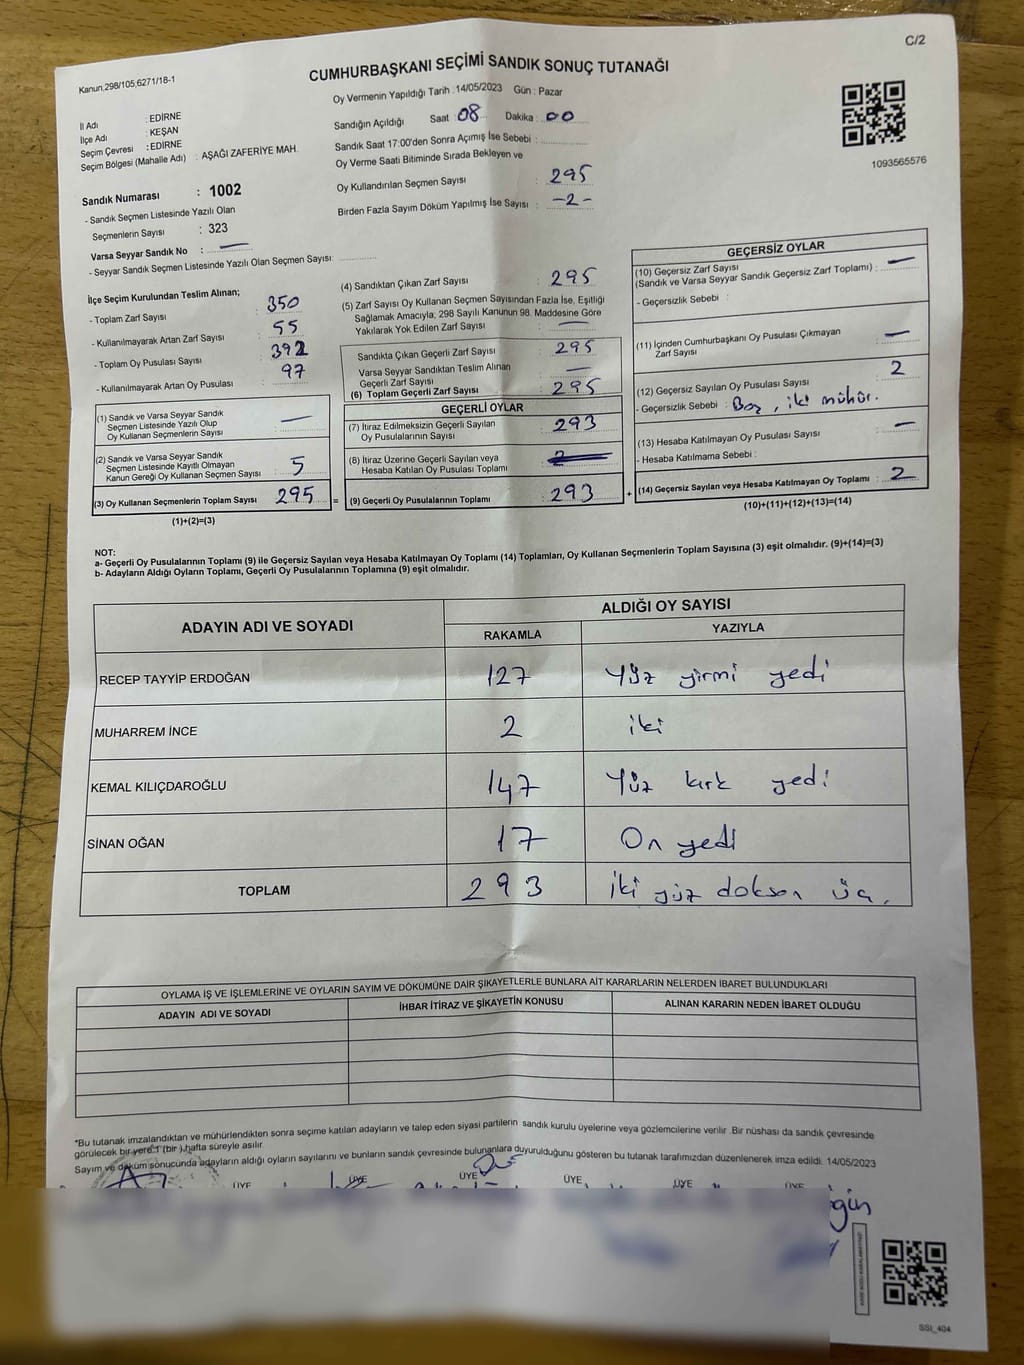 C/2
Kanun.298/105;6271/18-1
CUMHURBAŞKANI SEÇİMİ SANDIK SONUÇ TUTANAĞI
İl Adı : EDİRNE
İlçe Adı : KEŞAN
Seçim Çevresi : EDİRNE
Seçim Bölgesi (Mahalle Adı) : AŞAĞI ZAFERİYE MAH.
Sandık Numarası : 1002
- Sandık Seçmen Listesinde Yazılı Olan
Seçmenlerin Sayısı : 323
Varsa Seyyar Sandık No : —
- Seyyar Sandık Seçmen Listesinde Yazılı Olan Seçmen Sayısı:
Oy Vermenin Yapıldığı Tarih : 14/05/2023 Gün : Pazar
Sandığın Açıldığı Saat : 08 Dakika : 00
Sandık Saat 17:00'den Sonra Açımış İse Sebebi :
Oy Verme Saati Bitiminde Sırada Bekleyen ve
Oy Kullandırılan Seçmen Sayısı : 295
Birden Fazla Sayım Döküm Yapılmış İse Sayısı : -2-
1093565576
İlçe Seçim Kurulundan Teslim Alınan;
- Toplam Zarf Sayısı : 350
- Kullanılmayarak Artan Zarf Sayısı : 55
- Toplam Oy Pusulası Sayısı : 392
- Kullanılmayarak Artan Oy Pusulası : 97
(1) Sandık ve Varsa Seyyar Sandık
Seçmen Listesinde Yazılı Olup
Oy Kullanan Seçmenlerin Sayısı : —
(2) Sandık ve Varsa Seyyar Sandık
Seçmen Listesinde Kayıtlı Olmayan
Kanun Gereği Oy Kullanan Seçmen Sayısı : 5
(3) Oy Kullanan Seçmenlerin Toplam Sayısı : 295 =
(1)+(2)=(3)
(4) Sandıktan Çıkan Zarf Sayısı : 295
(5) Zarf Sayısı Oy Kullanan Seçmen Sayısından Fazla İse, Eşitliği
Sağlamak Amacıyla; 298 Sayılı Kanunun 98. Maddesine Göre
Yakılarak Yok Edilen Zarf Sayısı : —
Sandıkta Çıkan Geçerli Zarf Sayısı : 295
Varsa Seyyar Sandıktan Teslim Alınan
Geçerli Zarf Sayısı : —
(6) Toplam Geçerli Zarf Sayısı : 295
GEÇERLİ OYLAR
(7) İtiraz Edilmeksizin Geçerli Sayılan
Oy Pusulalarının Sayısı : 293
(8) İtiraz Üzerine Geçerli Sayılan veya
Hesaba Katılan Oy Pusulası Toplamı :
(9) Geçerli Oy Pusulalarının Toplamı : 293 +
GEÇERSİZ OYLAR
(10) Geçersiz Zarf Sayısı
(Sandık ve Varsa Seyyar Sandık Geçersiz Zarf Toplamı) : —
- Geçersizlik Sebebi :
(11) İçinden Cumhurbaşkanı Oy Pusulası Çıkmayan
Zarf Sayısı : —
(12) Geçersiz Sayılan Oy Pusulası Sayısı : 2
- Geçersizlik Sebebi : Boş, iki mühür.
(13) Hesaba Katılmayan Oy Pusulası Sayısı : —
- Hesaba Katılmama Sebebi :
(14) Geçersiz Sayılan veya Hesaba Katılmayan Oy Toplamı : 2
(10)+(11)+(12)+(13)=(14)
NOT:
a- Geçerli Oy Pusulalarının Toplamı (9) ile Geçersiz Sayılan veya Hesaba Katılmayan Oy Toplamı (14) Toplamları, Oy Kullanan Seçmenlerin Toplam Sayısına (3) eşit olmalıdır. (9)+(14)=(3)
b- Adayların Aldığı Oyların Toplamı, Geçerli Oy Pusulalarının Toplamına (9) eşit olmalıdır.
ADAYIN ADI VE SOYADI ALDIĞI OY SAYISI
RAKAMLA YAZIYLA
RECEP TAYYİP ERDOĞAN 127 Yüz yirmi yedi
MUHARREM İNCE 2 iki
KEMAL KILIÇDAROĞLU 147 Yüz kırk yedi
SİNAN OĞAN 17 On yedi
TOPLAM 293 iki yüz doksan üç.
OYLAMA İŞ VE İŞLEMLERİNE VE OYLARIN SAYIM VE DÖKÜMÜNE DAİR ŞİKAYETLERLE BUNLARA AİT KARARLARIN NELERDEN İBARET BULUNDUKLARI
ADAYIN ADI VE SOYADI İHBAR İTİRAZ VE ŞİKAYETİN KONUSU ALINAN KARARIN NEDEN İBARET OLDUĞU
*Bu tutanak imzalandıktan ve mühürlendikten sonra seçime katılan adayların ve talep eden siyasi partilerin sandık kurulu üyelerine veya gözlemcilerine verilir .Bir nüshası da sandık çevresinde
görülecek bir yere 1 (bir ) hafta süreyle asılır.
Sayım ve döküm sonucunda adayların aldığı oyların sayılarını ve bunların sandık çevresinde bulunanlara duyurulduğunu gösteren bu tutanak tarafımızdan düzenlenerek imza edildi. 14/05/2023
ÜYE ÜYE ÜYE ÜYE ÜYE ÜYE
SSI_404